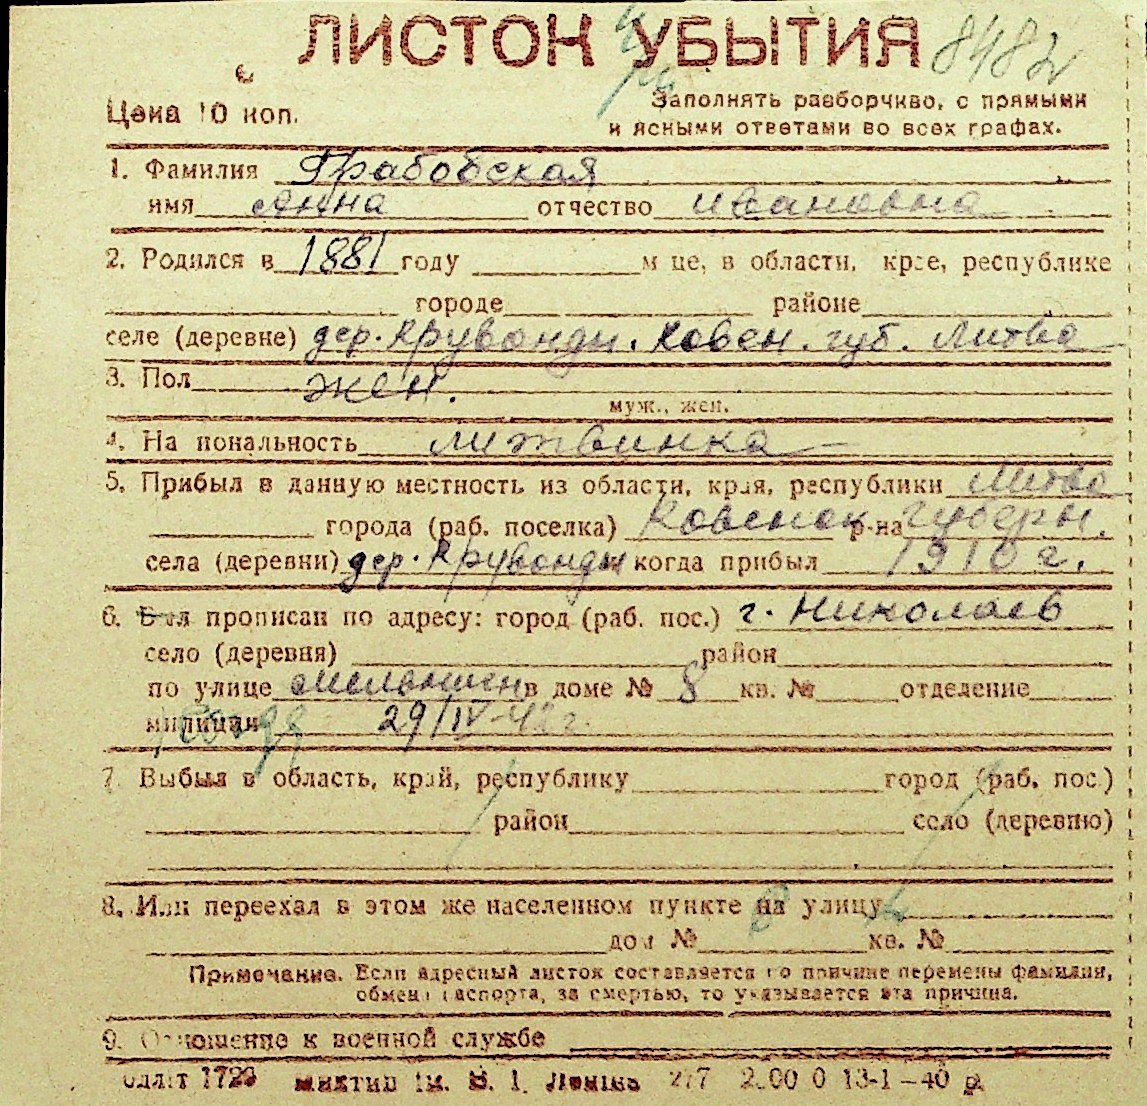 ЛИСТОН УБЫТИЯ 8482
Цена 10 коп.
Заполнять разборчиво, с прямыми
и ясными ответами во всех графах.
1. Фамилия Грабовская
имя Анна отчество Ивановна
2. Родился в 1881 году м це, в области, крае, республике
городе районе
селе (деревне) дер. Крувонды. Ковен. губ. Литва
3. Пол жен.
муж., жен.
4. На иональность литвинка
5. Прибыл в данную местность из области, края, республики Литва
города (раб. поселка) Ковенск р-на губерн.
села (деревни) дер. Крувонды когда прибыл 1910 г.
6. Был прописан по адресу: город (раб. пос.) г. Николаев
село (деревня) район
по улице в доме № 8 кв. № отделение
милиции 29/IV-42 г.
7. Выбыл в область, край, республику город (раб. пос.)
район село (деревню)
8. Или переехал в этом же населенном пункте на улицу
дом № кв. №
Примечание. Если адресный листок составляется по причине перемены фамилии,
обмена паспорта, за смертью, то указывается эта причина.
9. Отношение к военной службе
1729 им. В. І. Леніна 277 13-1-40 р